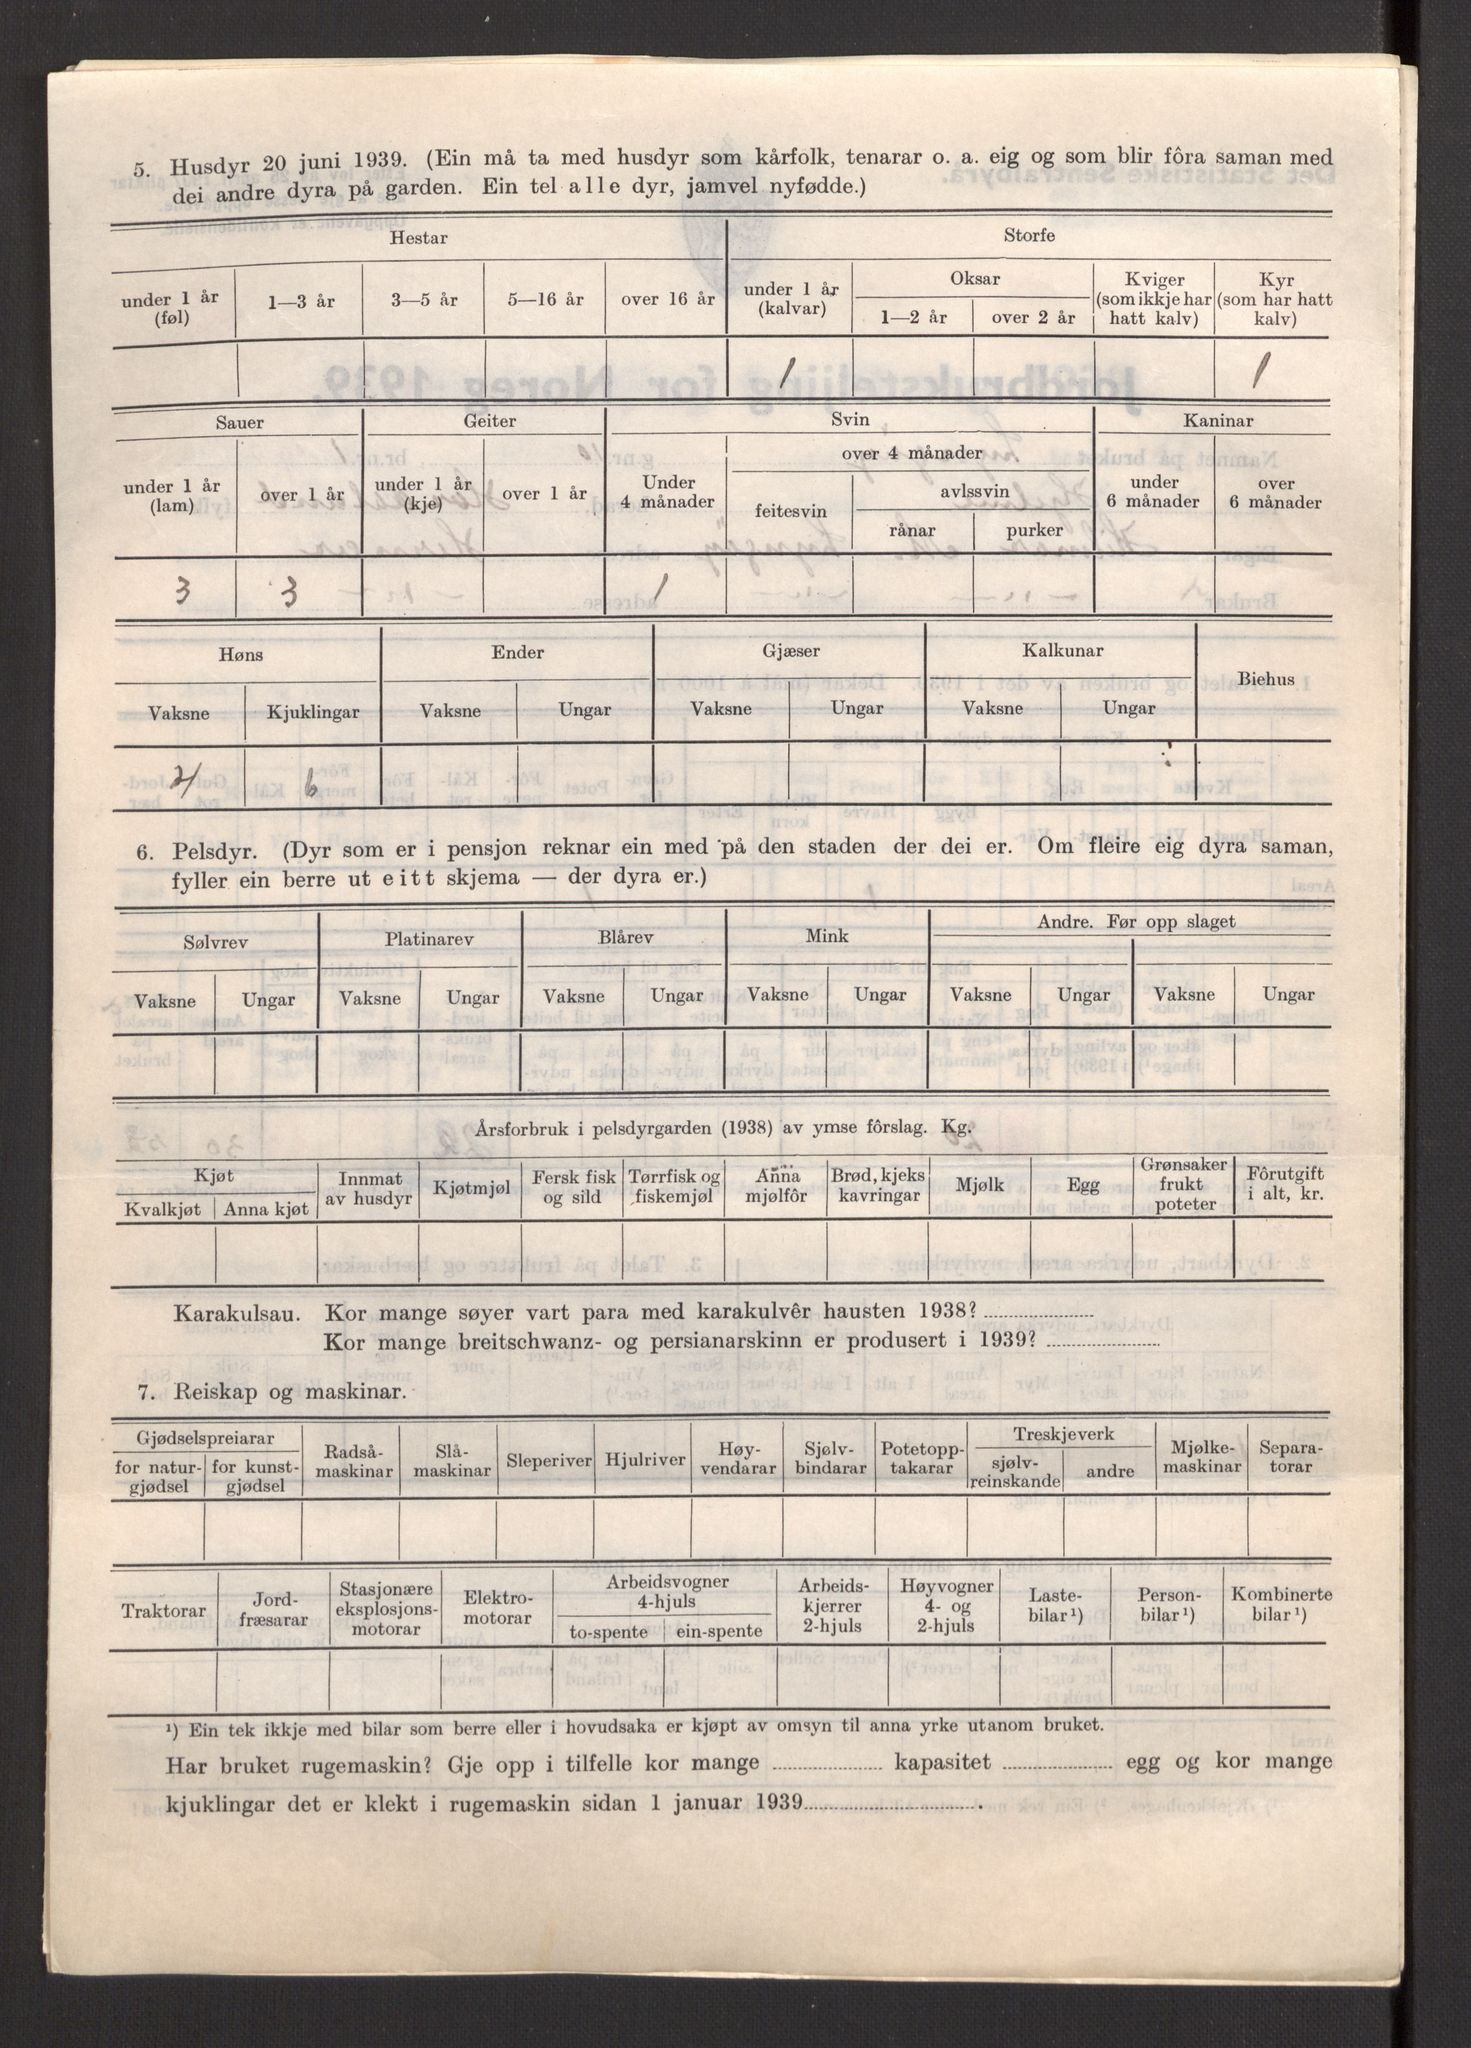 5. Husdyr 20 juni 1939. (Ein må ta med husdyr som kårfolk, tenarar o. a. eig og som blir fôra saman med
dei andre dyra på garden. Ein tel alle dyr, jamvel nyfødde.)
Hestar Storfe
under 1 år (føl) 1—3 år 3—5 år 5—16 år over 16 år under 1 år (kalvar) Oksar 1—2 år over 2 år Kviger (som ikkje har hatt kalv) Kyr (som har hatt kalv)
1 1
Sauer Geiter Svin Kaninar
under 1 år (lam) over 1 år under 1 år (kje) over 1 år Under 4 månader over 4 månader feitesvin avlssvin rånar purker under 6 månader over 6 månader
3 3 1
Høns Ender Gjæser Kalkunar Biehus
Vaksne Kjuklingar Vaksne Ungar Vaksne Ungar Vaksne Ungar
4 6
6. Pelsdyr. (Dyr som er i pensjon reknar ein med på den staden der dei er. Om fleire eig dyra saman,
fyller ein berre ut eitt skjema — der dyra er.)
Sølvrev Platinarev Blårev Mink Andre. Før opp slaget
Vaksne Ungar Vaksne Ungar Vaksne Ungar Vaksne Ungar Vaksne Ungar Vaksne Ungar
Årsforbruk i pelsdyrgarden (1938) av ymse fôrslag. Kg.
Kjøt Kvalkjøt Anna kjøt Innmat av husdyr Kjøtmjøl Fersk fisk og sild Tørrfisk og fiskemjøl Anna mjølfôr Brød, kjeks kavringar Mjølk Egg Grønsaker frukt poteter Fôrutgift i alt, kr.
Karakulsau. Kor mange søyer vart para med karakulvêr hausten 1938?
Kor mange breitschwanz- og persianarskinn er produsert i 1939?
7. Reiskap og maskinar.
Gjødselspreiarar for natur-gjødsel for kunst-gjødsel Radså-maskinar Slå-maskinar Sleperiver Hjulriver Høy-vendarar Sjølv-bindarar Potetopp-takarar Treskjeverk sjølv-reinskande andre Mjølke-maskinar Separa-torar
Traktorar Jord-fræsarar Stasjonære eksplosjons-motorar Elektro-motorar Arbeidsvogner 4-hjuls to-spente ein-spente Arbeids-kjerrer 2-hjuls Høyvogner 4- og 2-hjuls Laste-bilar ¹) Person-bilar ¹) Kombinerte bilar ¹)
¹) Ein tek ikkje med bilar som berre eller i hovudsaka er kjøpt av omsyn til anna yrke utanom bruket.
Har bruket rugemaskin? Gje opp i tilfelle kor mange kapasitet egg og kor mange
kjuklingar det er klekt i rugemaskin sidan 1 januar 1939